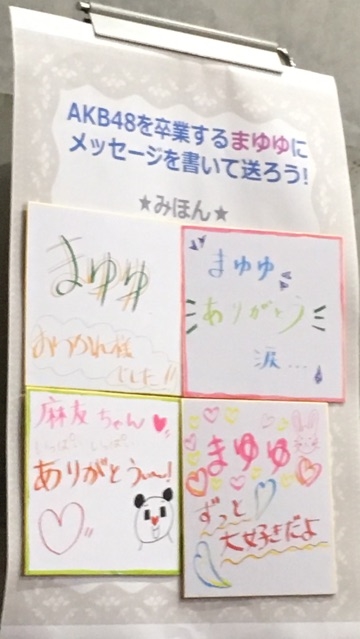 AKB48を卒業するまゆゆに
メッセージを書いて送ろう!
★みほん★
まゆゆ
おつかれ様
でした!!
まゆゆ
ありがとう
涙…
麻友ちゃん
いっぱいいっぱい
ありがとうー!
まゆゆ
ずっと
大好きだよ